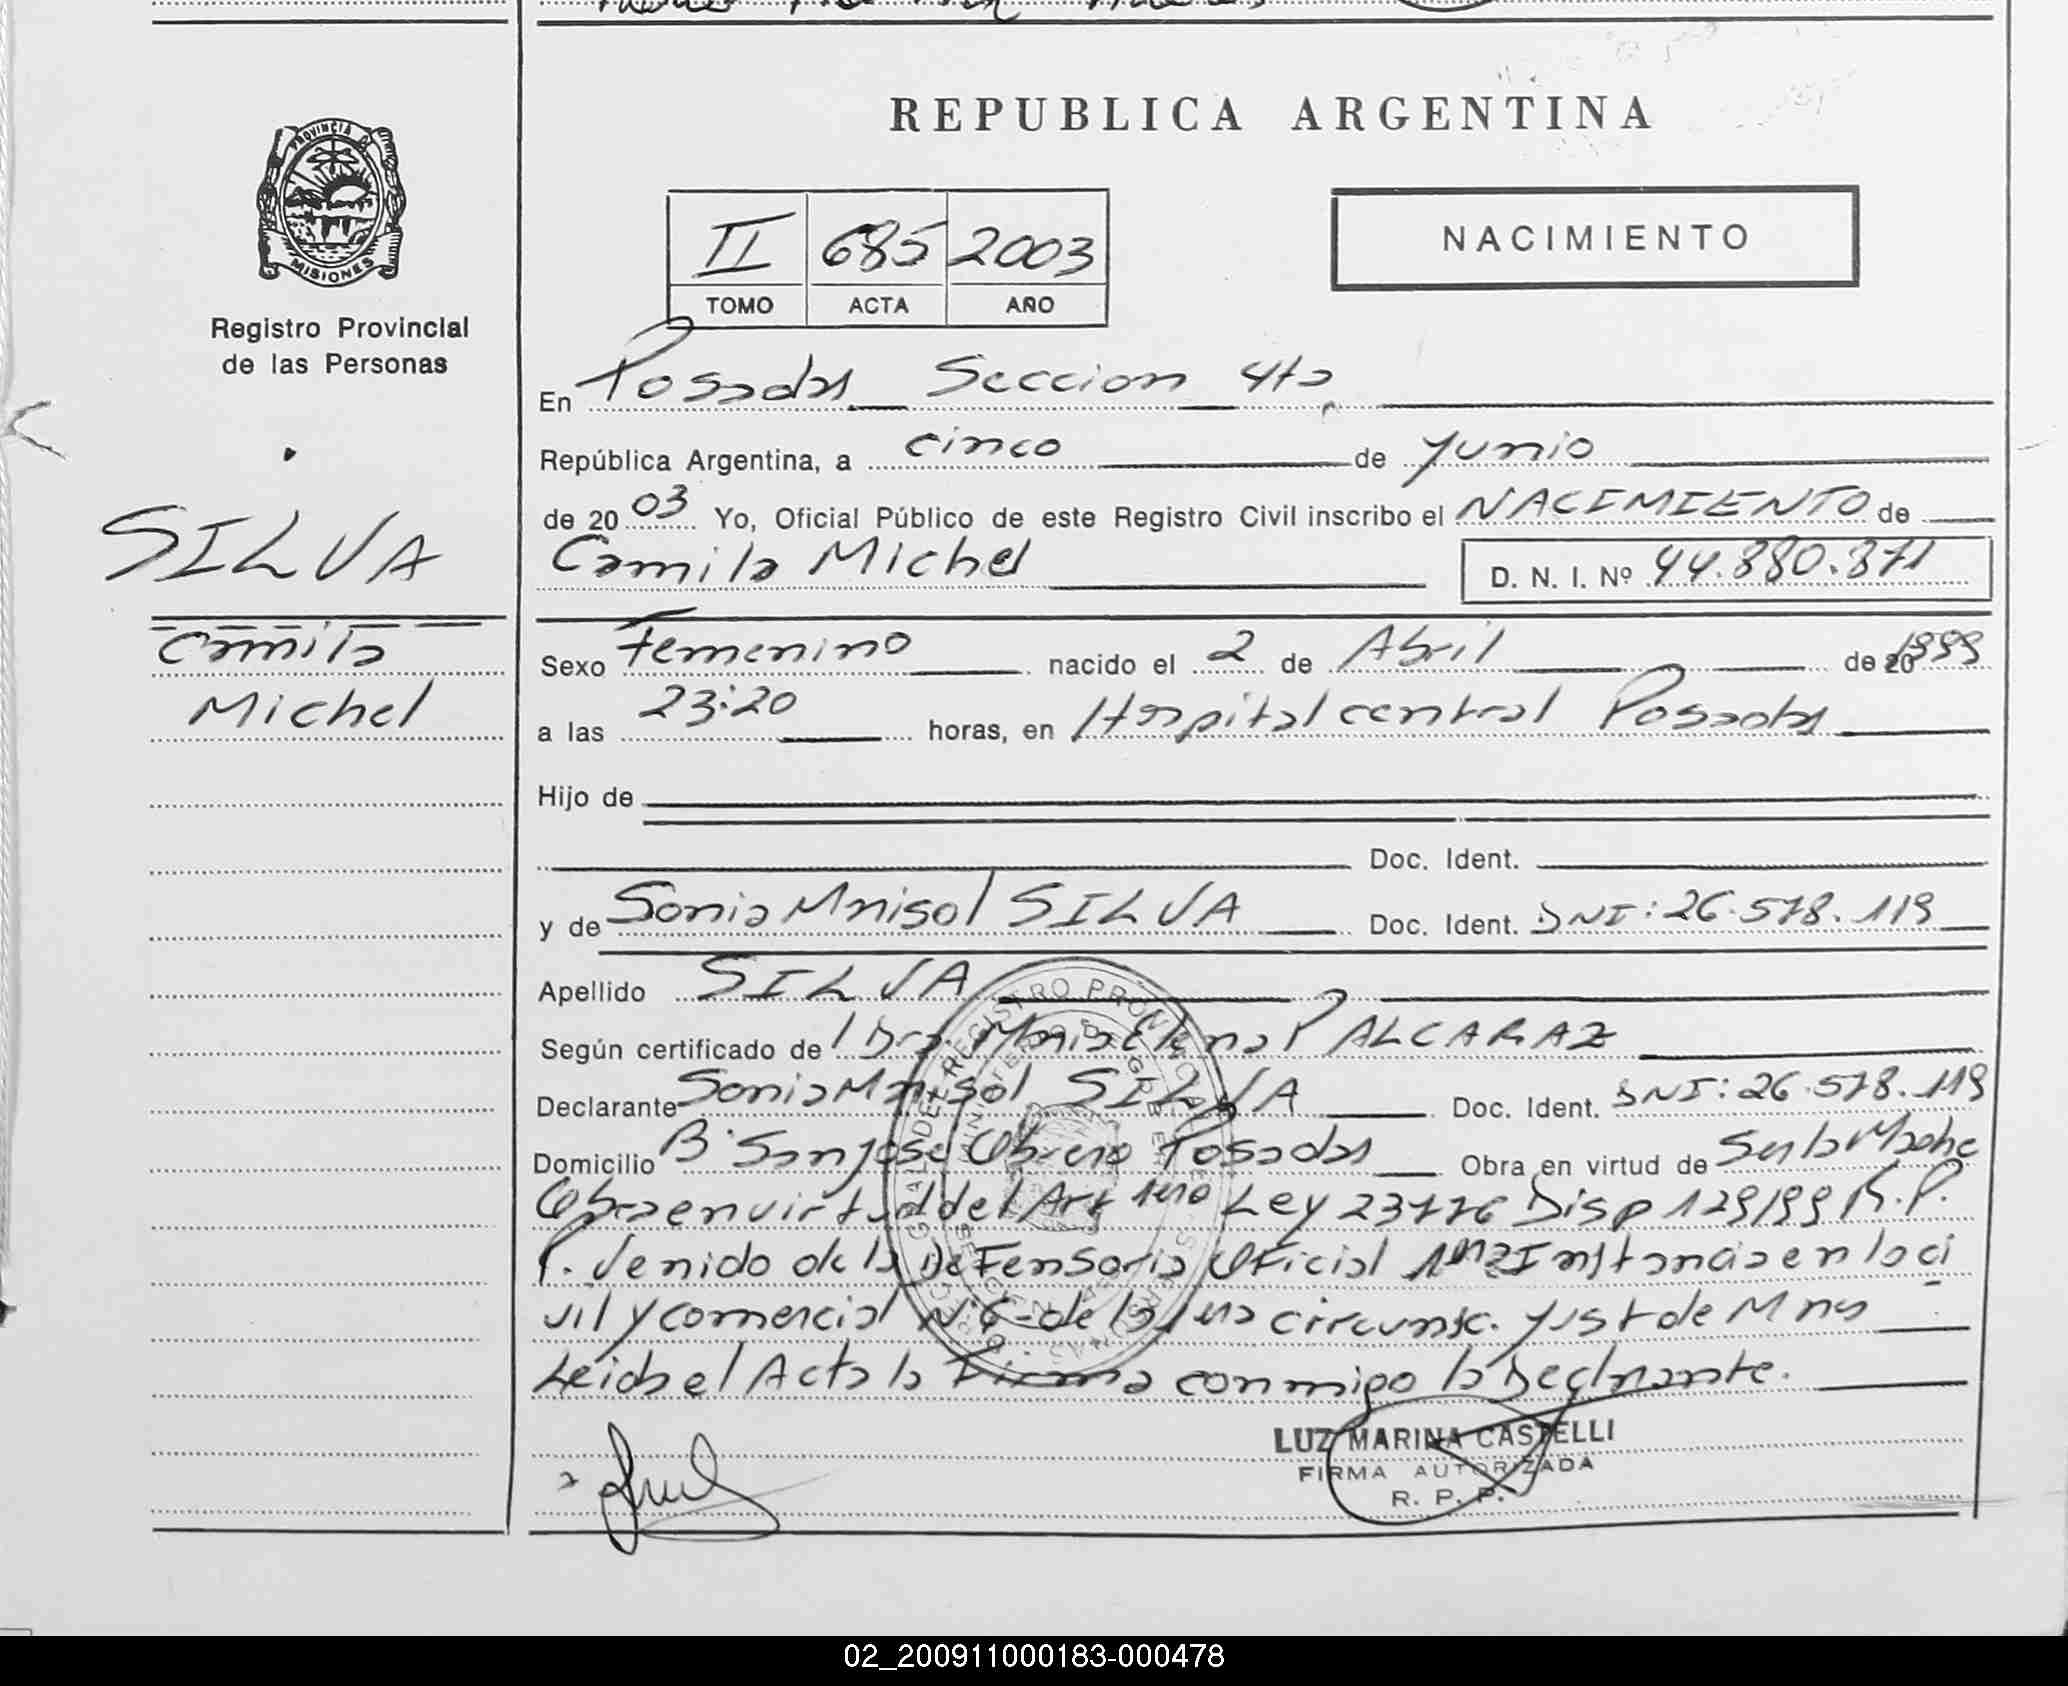 REPUBLICA ARGENTINA
PROVINCIA DE
MISIONES
Registro Provincial
de las Personas
II 685 2003
TOMO ACTA AÑO
NACIMIENTO
En Posadas Seccion 4ta
República Argentina, a cinco de Junio
de 2003 Yo, Oficial Público de este Registro Civil inscribo el NACIMIENTO de
Camila Michel D. N. I. Nº 44.880.871
SILVA
Camila
Michel
Sexo Femenino nacido el 2 de Abril de 1999
a las 23:20 horas, en Hospital central Posadas
Hijo de
Doc. Ident.
y de Sonia Marisol SILVA Doc. Ident. DNI: 26.578.119
Apellido SILVA
Según certificado de Dra. Maria Elena P ALCARAZ
Declarante Sonia Marisol SILVA Doc. Ident. DNI: 26.578.119
Domicilio B· San José Obrero Posadas Obra en virtud de Ser la Madre
Obra en virtud del Art 1ero Ley 23776 Disp 129/99 R.P.
P. Venido de la Defensoria Oficial 1era Instancia en lo ci
vil y comercial Nº6 de la 1era circunsc. Just de Mnes
Leida el Acta la Firma conmigo la Declarante.
LUZ MARINA CASTELLI
FIRMA AUTORIZADA
R. P. P.
02_200911000183-000478